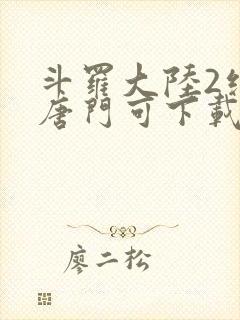 斗羅大陸2
唐門可下載
廖二松